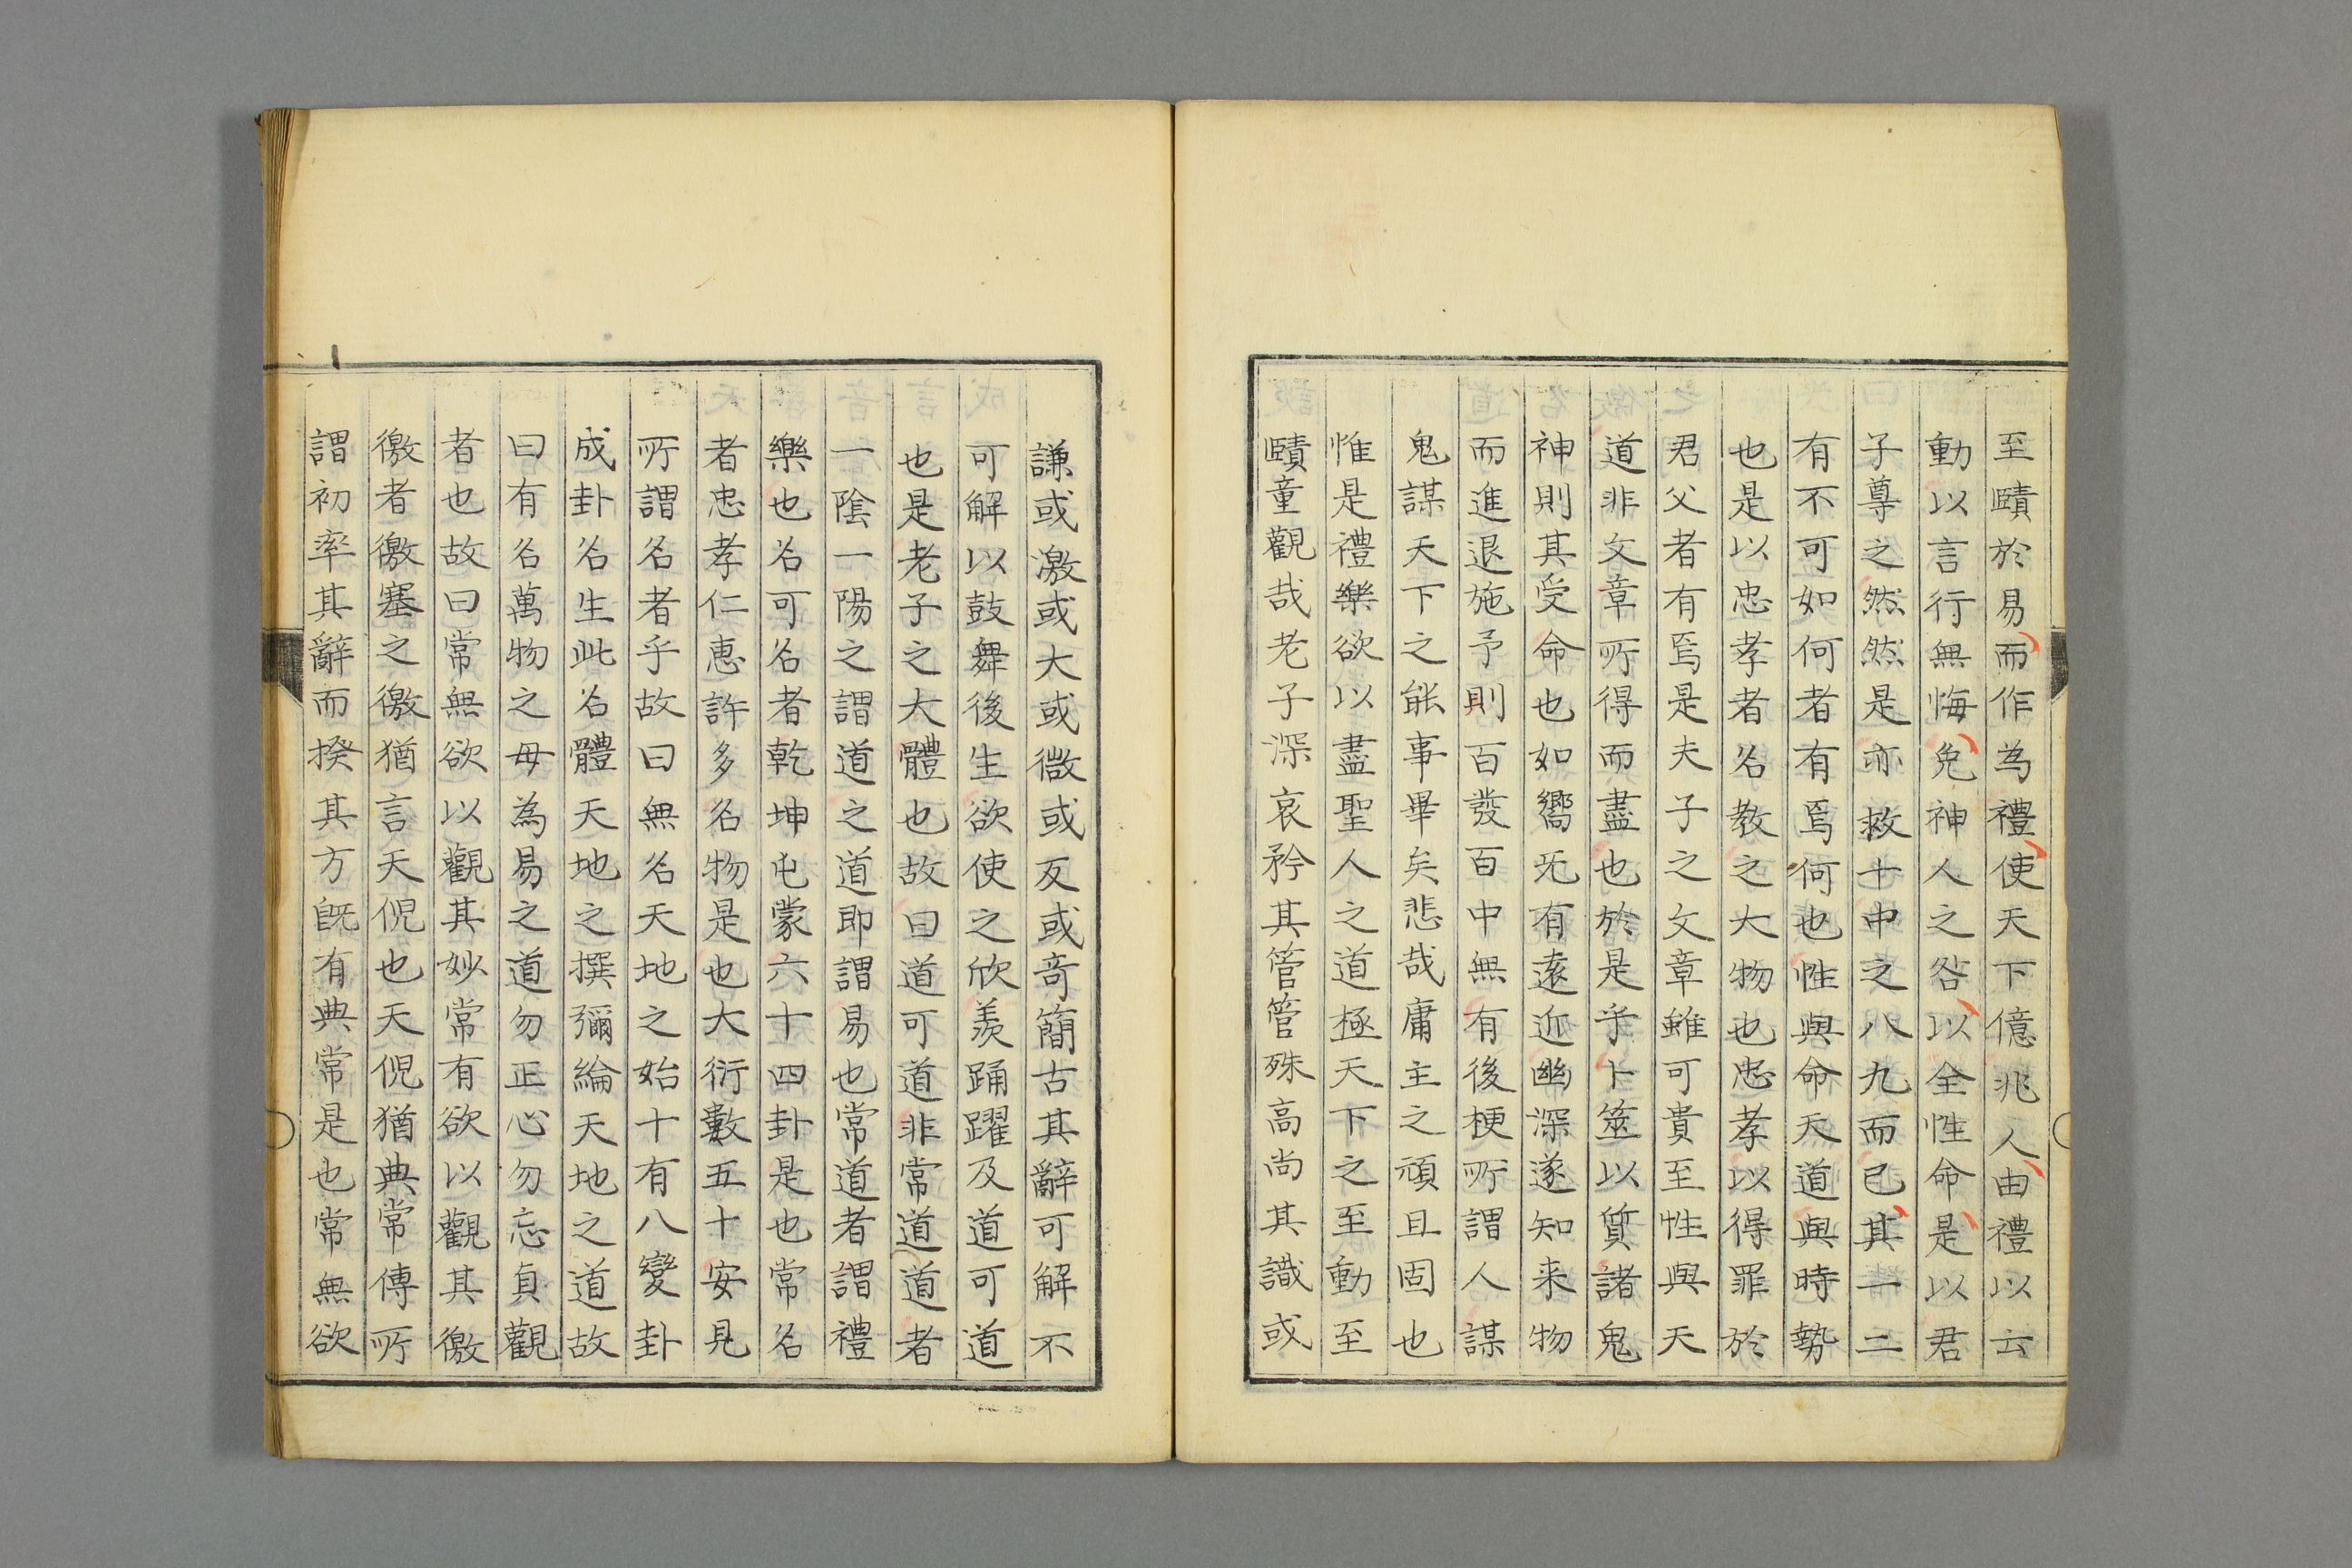 至賾於易而作為禮使天下億兆人由禮以云
動以言行無悔免神人之咎以全性命是以君
子尊之然然是亦救十中之八九而已其一二
有不可如何者有焉何也性與命天道與時勢
也是以忠孝者名教之大物也忠孝以得罪於
君父者有焉是夫子之文章雖可貴至性與天
道非文章所得而盡也於是乎卜筮以質諸鬼
神則其受命也如嚮旡有遠近幽深遂知来物
而進退施予則百發百中無有後梗所謂人謀
鬼謀天下之能事畢矣悲哉庸主之頑且固也
惟是禮樂欲以盡聖人之道極天下之至動至
賾童觀哉老子深哀矜其管管殊高尚其識或
謙或激或大或微或反或奇簡古其辭可解不
可解以鼓舞後生欲使之欣羨踊躍及道可道
也是老子之大體也故曰道可道非常道道者
一陰一陽之謂道之道即謂易也常道者謂禮
樂也名可名者乾坤屯蒙六十四卦是也常名
者忠孝仁惠許多名物是也大衍數五十安見
所謂名者乎故曰無名天地之始十有八變卦
成卦名生此名體天地之撰彌綸天地之道故
曰有名萬物之母為易之道勿正心勿忘貞觀
者也故曰常無欲以觀其妙常有欲以觀其徼
徼者徼塞之徼猶言天倪也天倪猶典常傳所
謂初率其辭而揆其方既有典常是也常無欲